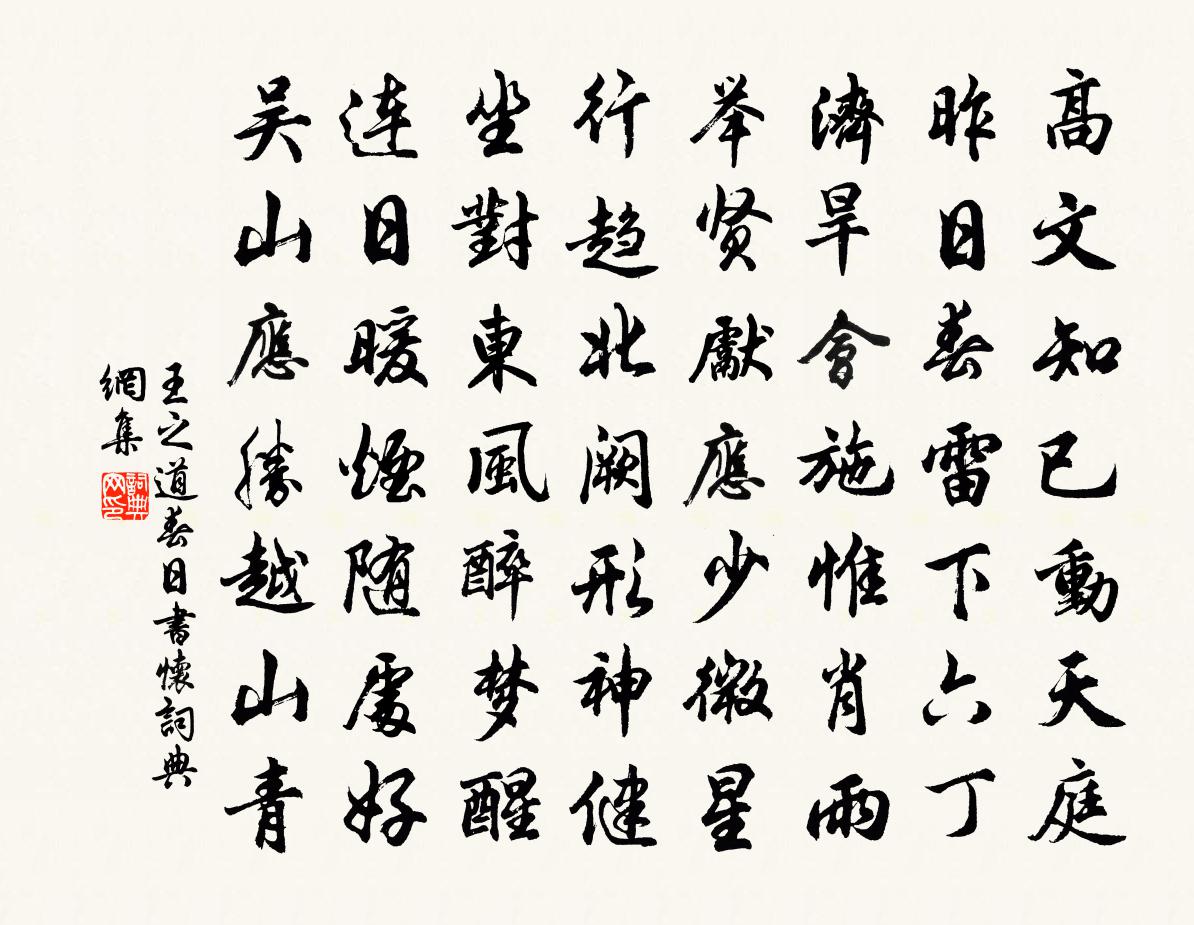 高文知已動天庭
昨日春雷下六丁
濟旱會施惟肖雨
举贤獻應少微星
行趋北阙形神健
坐對東風醉梦醒
连日暖煙随處好
吴山應勝越山青
王之道春日書懷詞典
網集
詞典
网印